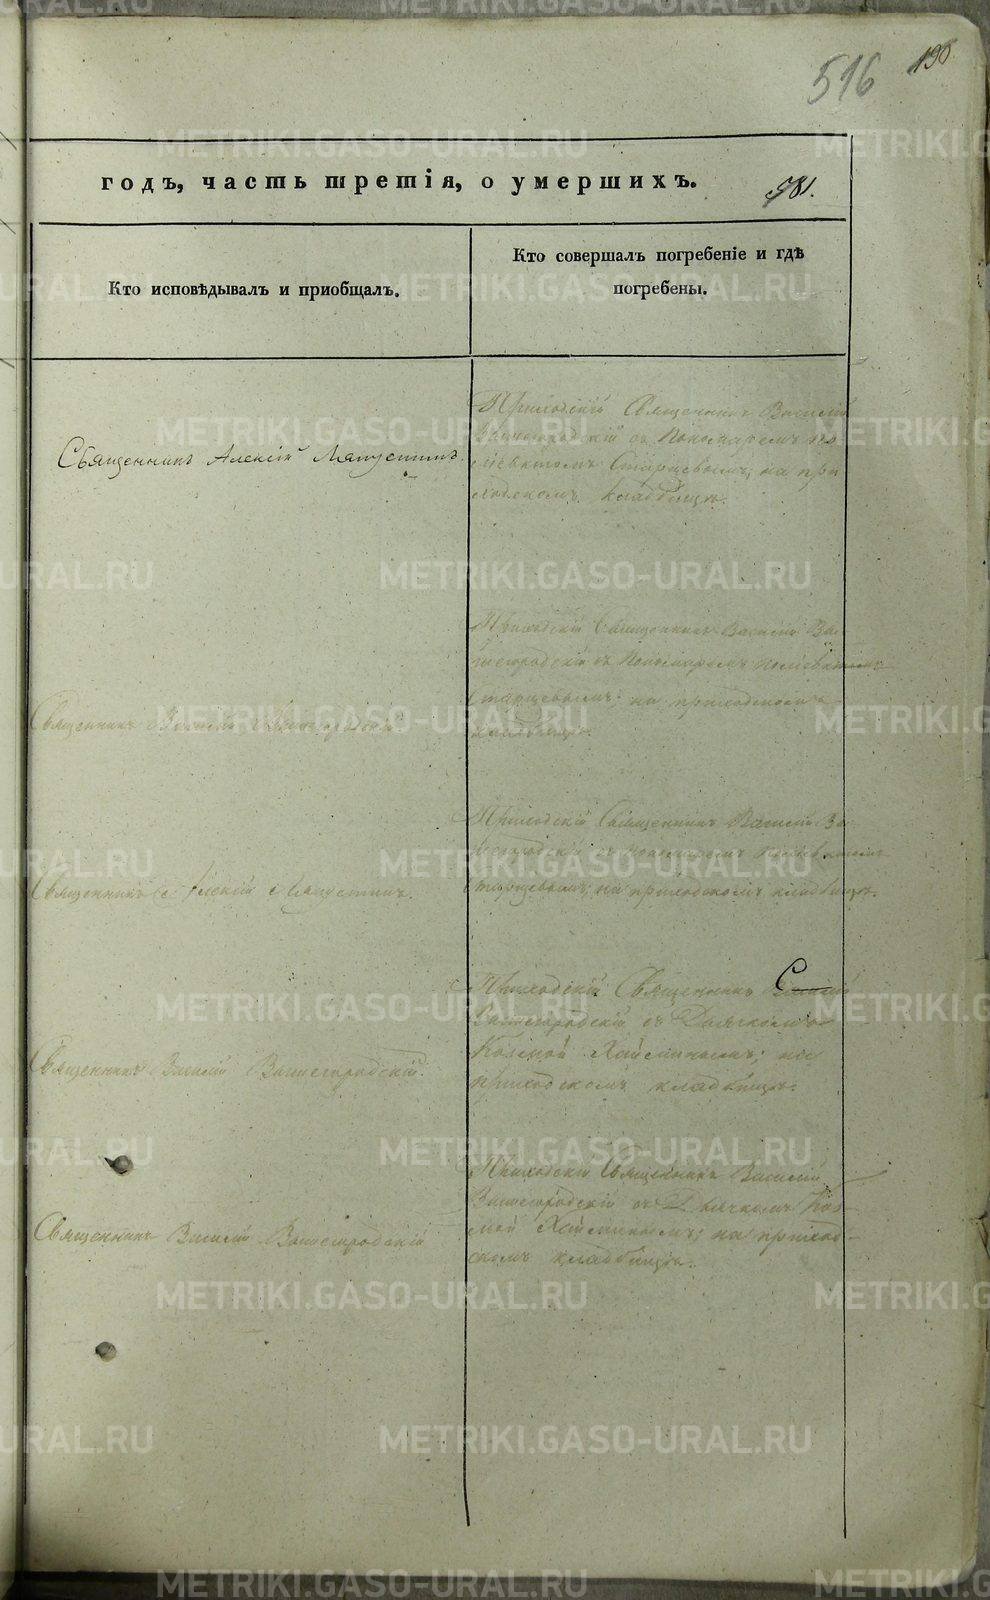 516 190
годъ, часть третія, о умершихъ. 581.
Кто исповѣдывалъ и приобщалъ.
Кто совершалъ погребеніе и гдѣ
погребены.
Священникъ Алексій Ляпустинъ.
Приходскій Священникъ Василій
Вышегородскій съ Пономаремъ
Старцевымъ; на при
ходскомъ кладбищѣ.
Священникъ Василій Вышегородскій
Приходскій Священникъ Василій Вы
шегородскій съ Пономаремъ
Старцевымъ; на приходскомъ
кладбищѣ.
Священникъ Алексій Ляпустинъ.
Приходскій Священникъ Василій Вы
шегородскій съ Пономаремъ
Старцевымъ; на приходскомъ кладбищѣ.
Священникъ Василій Вышегородскій.
Приходскій Священникъ Василій
Вышегородскій съ Дьячкомъ
Козмой; на
приходскомъ кладбищѣ.
Священникъ Василій Вышегородскій
Приходскій Священникъ Василій
Вышегородскій съ Дьячкомъ Коз
мой; на приход
скомъ кладбищѣ.
METRIKI.GASO-URAL.RU